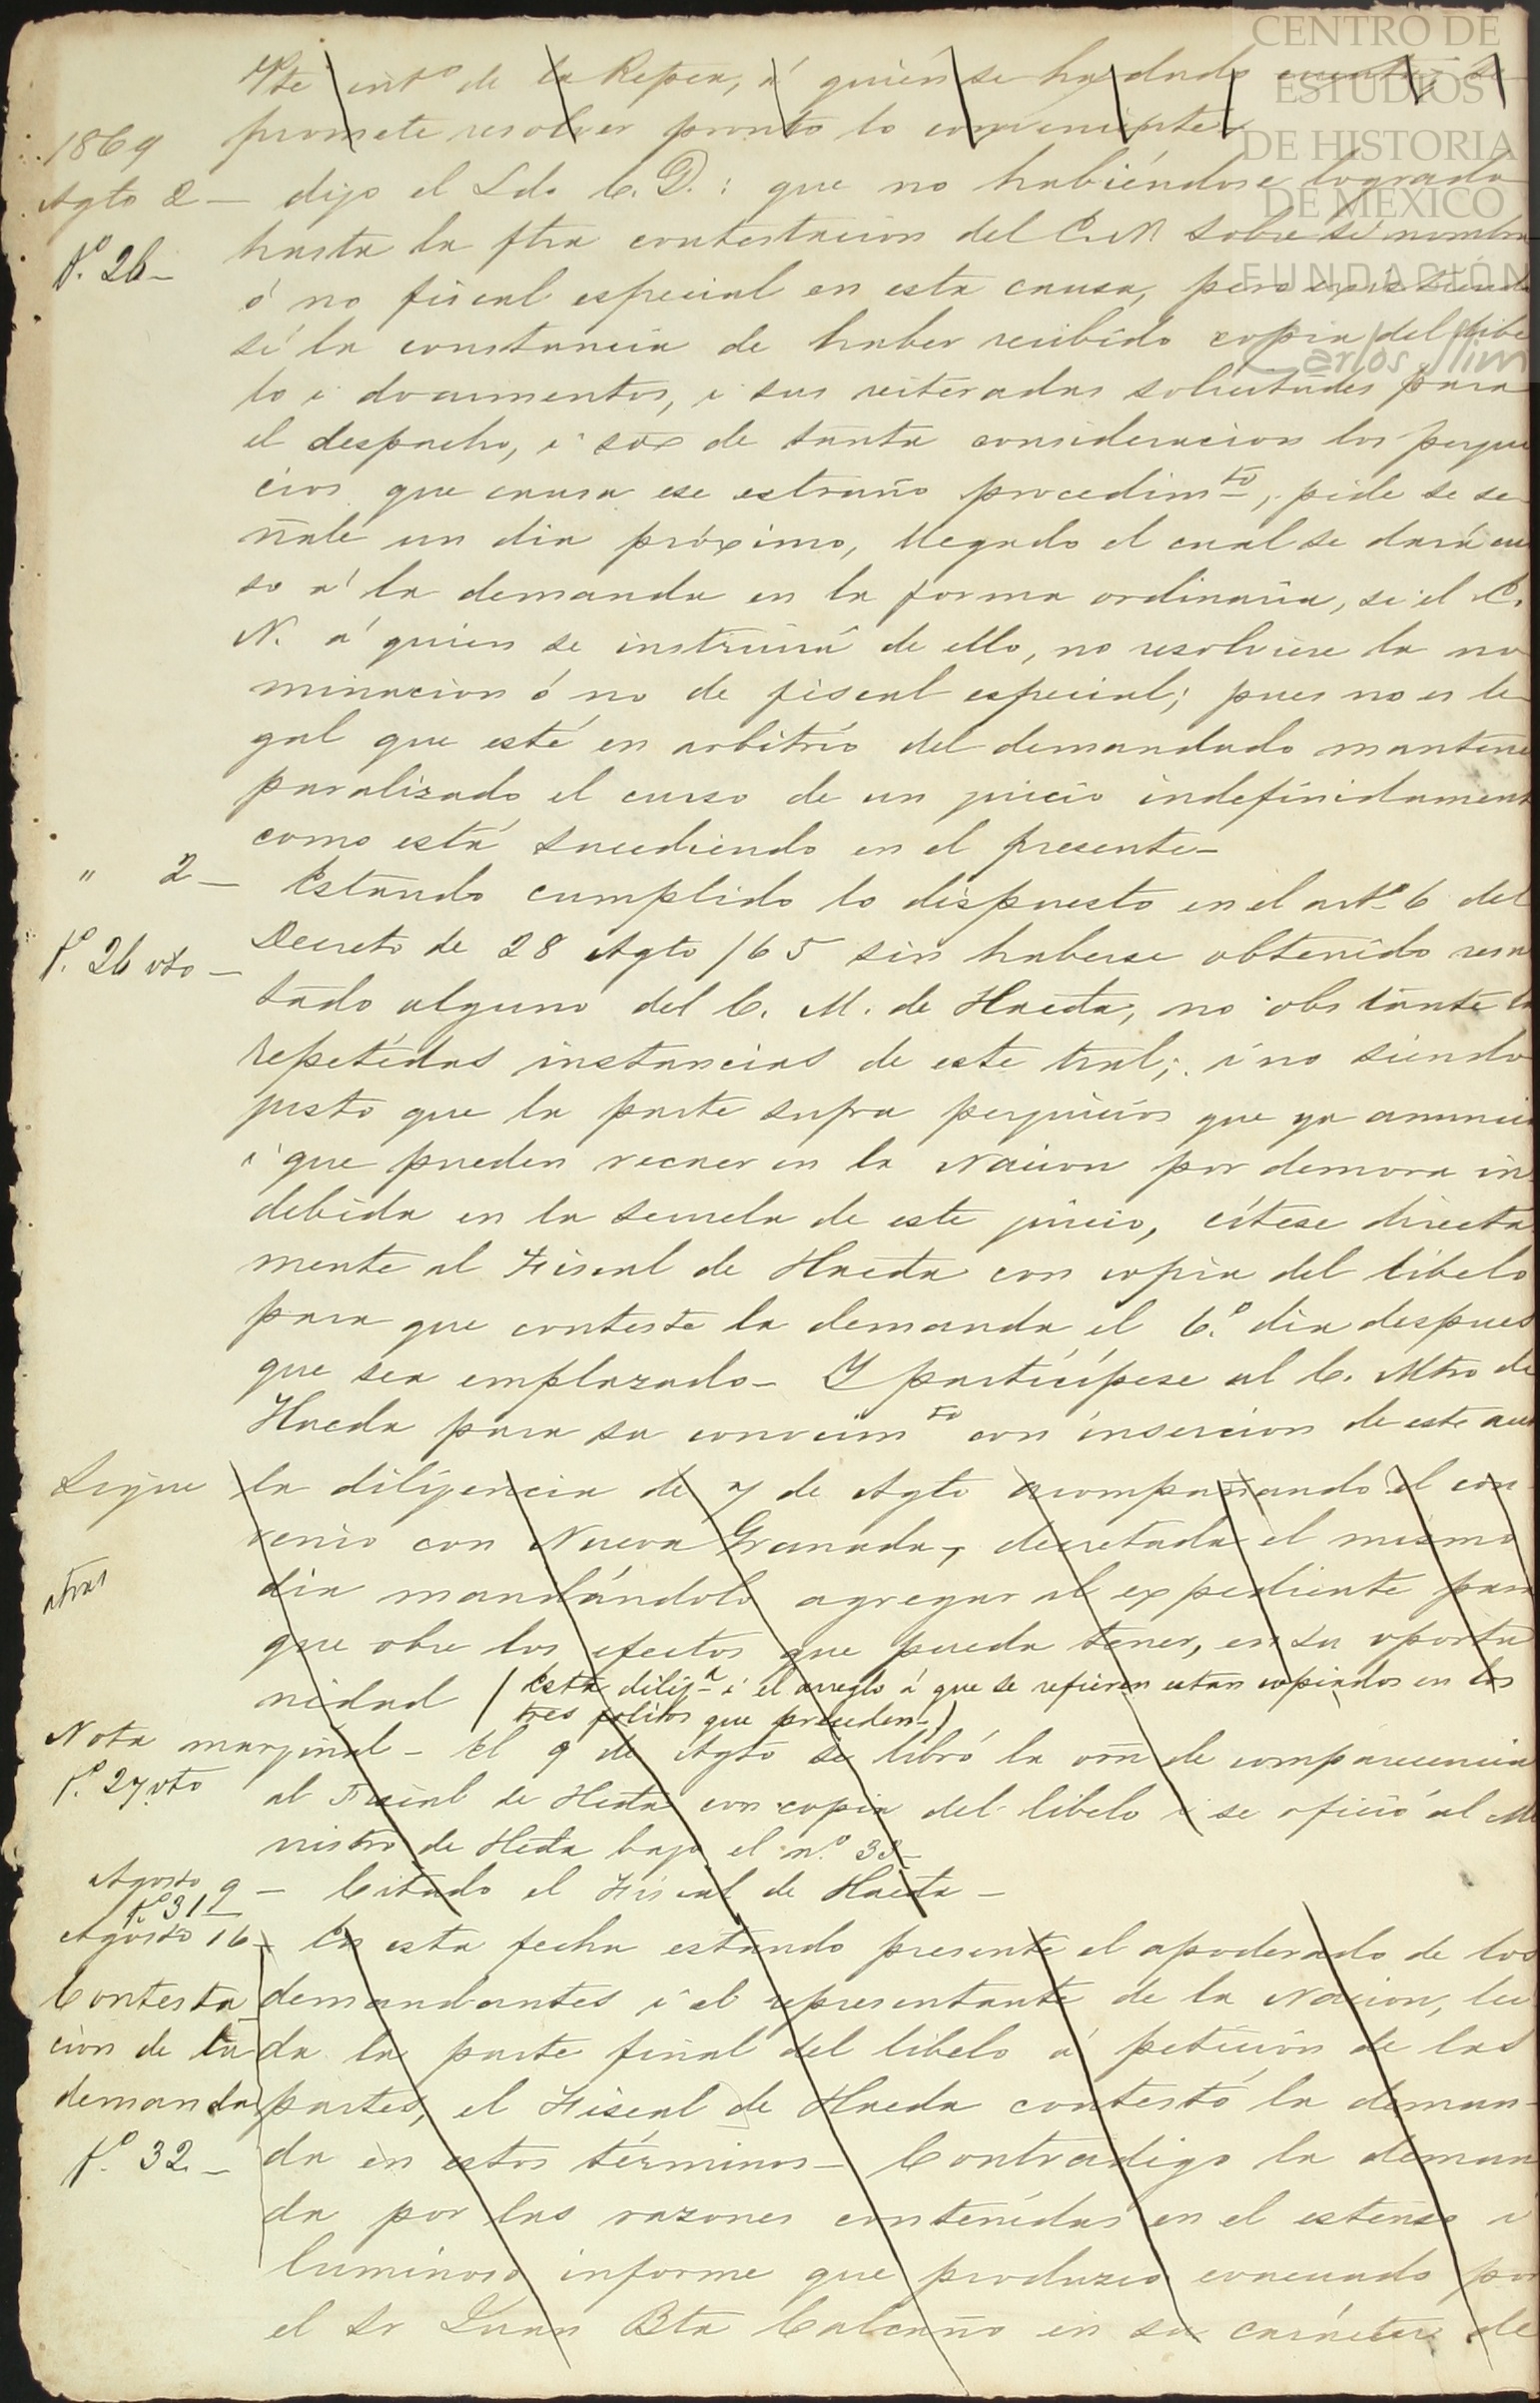 Pte int.º de la Repca, á quién se ha dado cuenta, se
promete resolver pronto lo conveniente
1869
Agto 2 — dijo el Ldo C. D.: que no habiéndose logrado
hasta la ftra contestacion del E. N sobre si nombra
fº. 26 —
ó no fiscal especial en esta causa, pero
sí la constancia de haber recibido copia del libe
lo i documentos, i sus reiteradas solicitudes para
el despacho, i de tanta consideracion los perjui
cios que causa ese estraño procedimto, pide se se
ñale un dia próximo, llegado el cual se dará cur
so a' la demanda en la forma ordinaria, si el E.
N. a' quien se instruirá de ello, no resolviere la no
minacion ó no de fiscal especial; pues no es le
gal que esté en arbitrio del demandado mantene
paralizado el curso de un juicio indefinidament
como está sucediendo en el presente —
" 2 — Estando cumplido lo dispuesto en el artº. 6 del
fº. 26 vto — Decreto de 28 Agto /65 sin haberse obtenido resul
tado alguno del C. M. de Hacda, no obstante la
repetidas instancias de este tral; i no siendo
justo que la parte sufra perjuicios que ya anunci
i que pueden recaer en la Nacion por demora in
debida en la secuela de este juicio, cítese directa
mente al Fiscal de Hacda con copia del libelo
para que conteste la demanda el 6.º dia despues
que sea emplazado — Y partícipese al C. Mtro de
Hacda para su conocimto con insercion de este au
Sigue la diligencia de 7 de Agto acompañando el con
venio con Nueva Granada, decretada el mismo
atras dia mandándolo agregar al expediente para
que obre los efectos que pueda tener, en su oportu
nidad (Esta diliga i el arreglo á que se refieren estan copiados en los
tres folios que preceden —)
Nota marginal — El 9 de Agto se libró la orn de comparecencia
fº. 27 vto al Fiscal de Hcda con copia del libelo i se ofició al Mi
nistro de Hcda bajo el n.º 33 —
Agosto 9 — Citado el Fiscal de Hacda —
fº 31
Agosto 16 — En esta fecha estando presente el apoderado de los
Contesta demandantes i el representante de la Nacion, lei
cion de la da la parte final del libelo á peticion de las
demanda partes, el Fiscal de Hacda contestó la deman-
fº. 32 — da en estos términos — Contradigo la deman
da por las razones contenidas en el estenso i
luminoso informe que produzco evacuado por
el Sr Juan Bta Calcaño en su carácter de